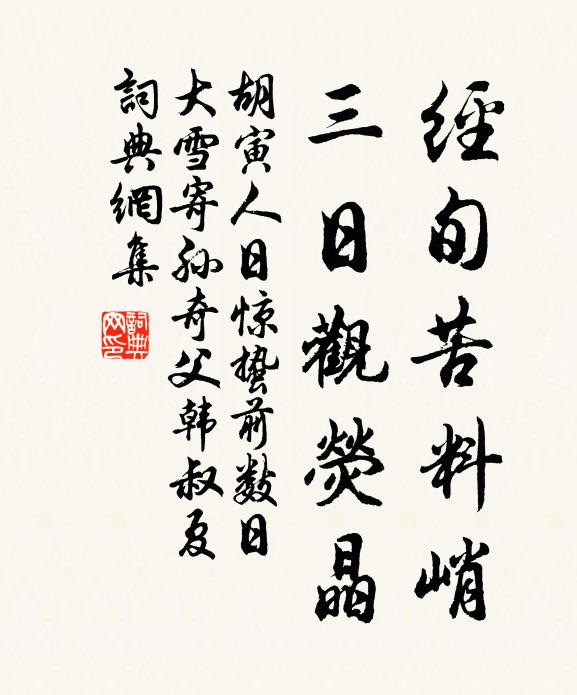 經旬苦料峭
三日觀熒晶
胡寅人日惊蛰前数日
大雪寄孙奇父韩叔夏
詞典網集
詞典网印